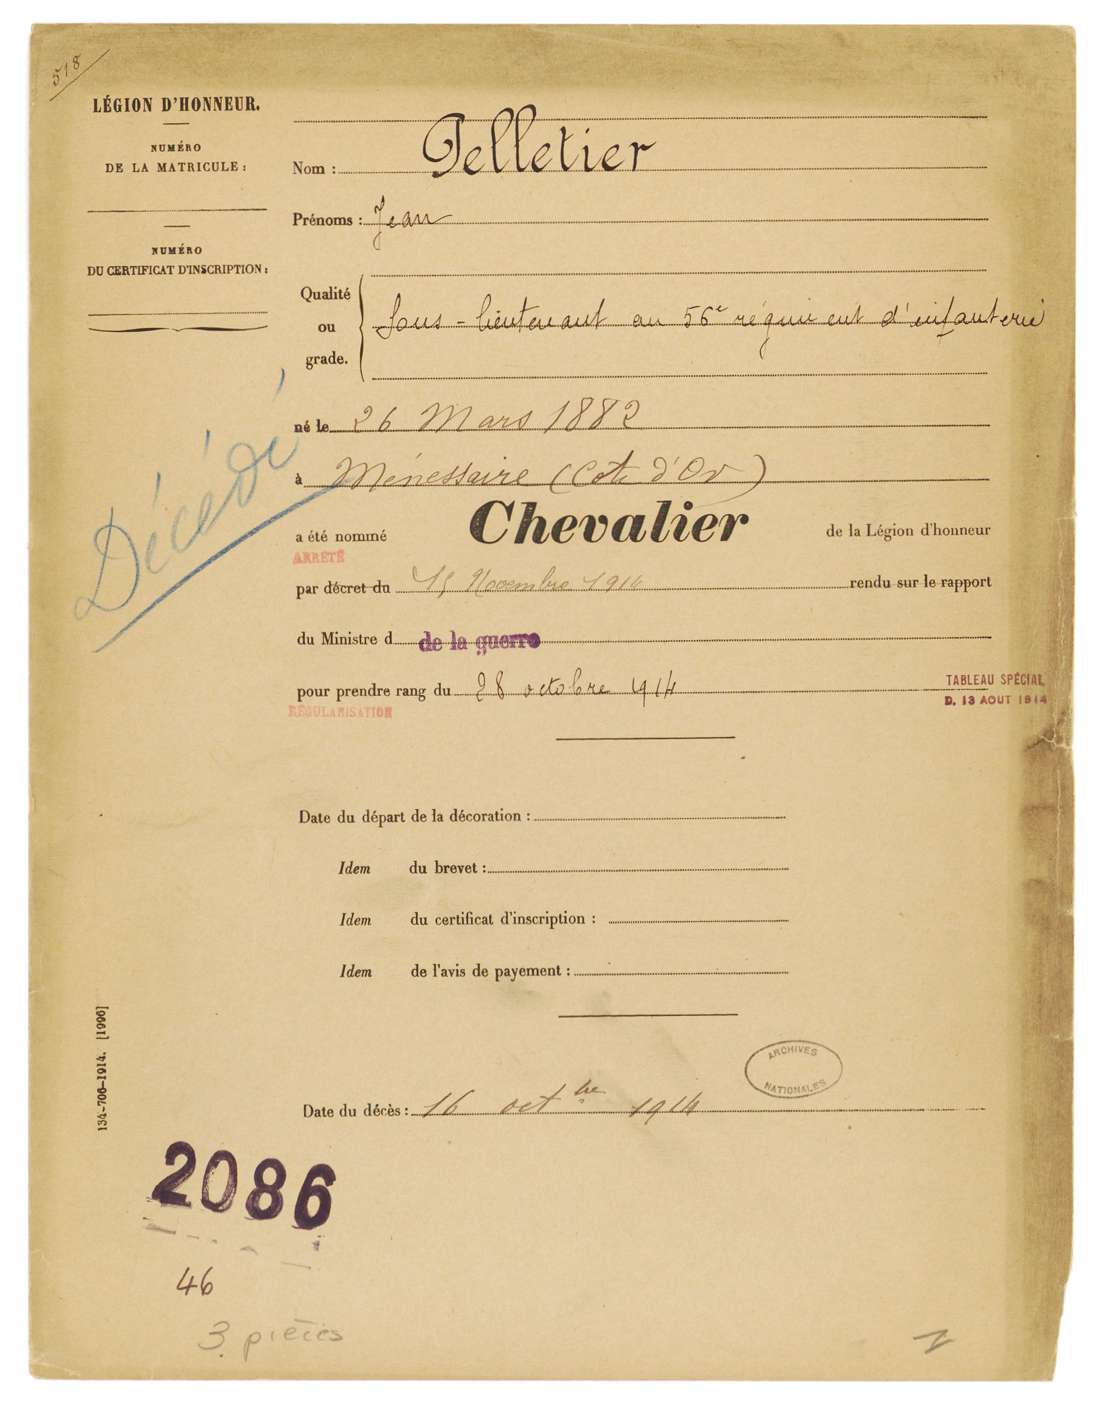 318
LÉGION D'HONNEUR.
NUMÉRO
DE LA MATRICULE :
NUMÉRO
DU CERTIFICAT D'INSCRIPTION :
Nom : Pelletier
Prénoms : Jean
Qualité ou grade. Sous-lieutenant au 56e régiment d'infanterie
né le 26 Mars 1882
à Ménessaire (Cote d'Or)
Décédé
a été nommé Chevalier de la Légion d'honneur
ARRÊTÉ
par décret du 15 Novembre 1914 rendu sur le rapport
du Ministre d de la guerre
pour prendre rang du 28 octobre 1914
TABLEAU SPÉCIAL
D. 13 AOUT 1914
RÉGULARISATION
Date du départ de la décoration :
Idem du brevet :
Idem du certificat d'inscription :
Idem de l'avis de payement :
134-706-1914. [1996]
ARCHIVES
NATIONALES
Date du décès : 16 octbre 1914
2086
46
3 pièces